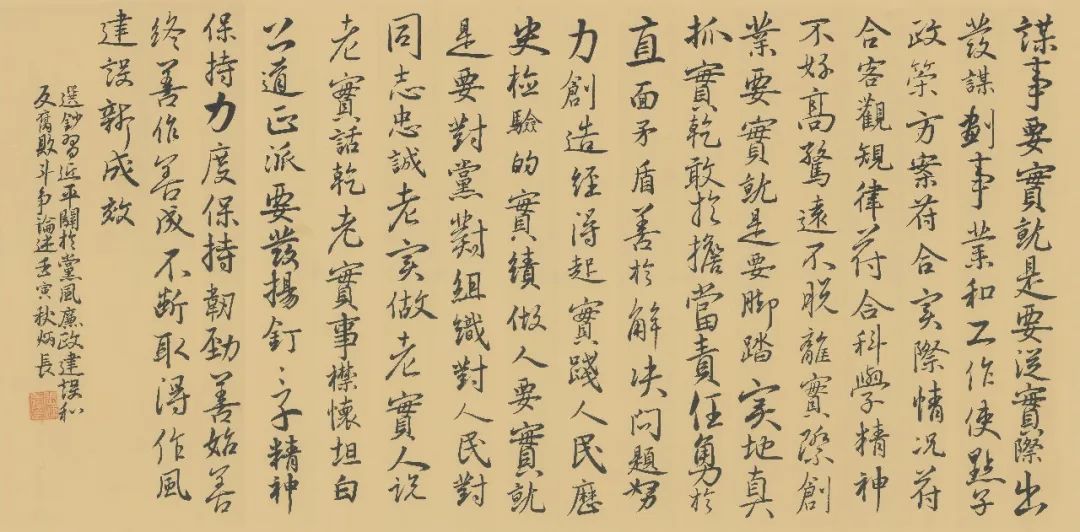 謀事要實就是要從實際出
發謀劃事業和工作使點子
政策方案符合实際情况符
合客觀規律符合科學精神
不好高騖遠不脱離實際創
業要實就是要脚踏实地真
抓實乾敢於擔當責任勇於
直面矛盾善於解决问題努
力創造經得起實踐人民歷
史检驗的實績做人要實就
是要對黨對組織對人民對
同志忠誠老实做老實人说
老實話乾老實事襟懷坦白
公道正派要發揚釘〻子精神
保持力度保持韌勁善始善
终善作善成不断取得作風
建設新成效
選鈔習近平關於黨風廉政建設和
反腐敗斗争論述壬寅秋炳長